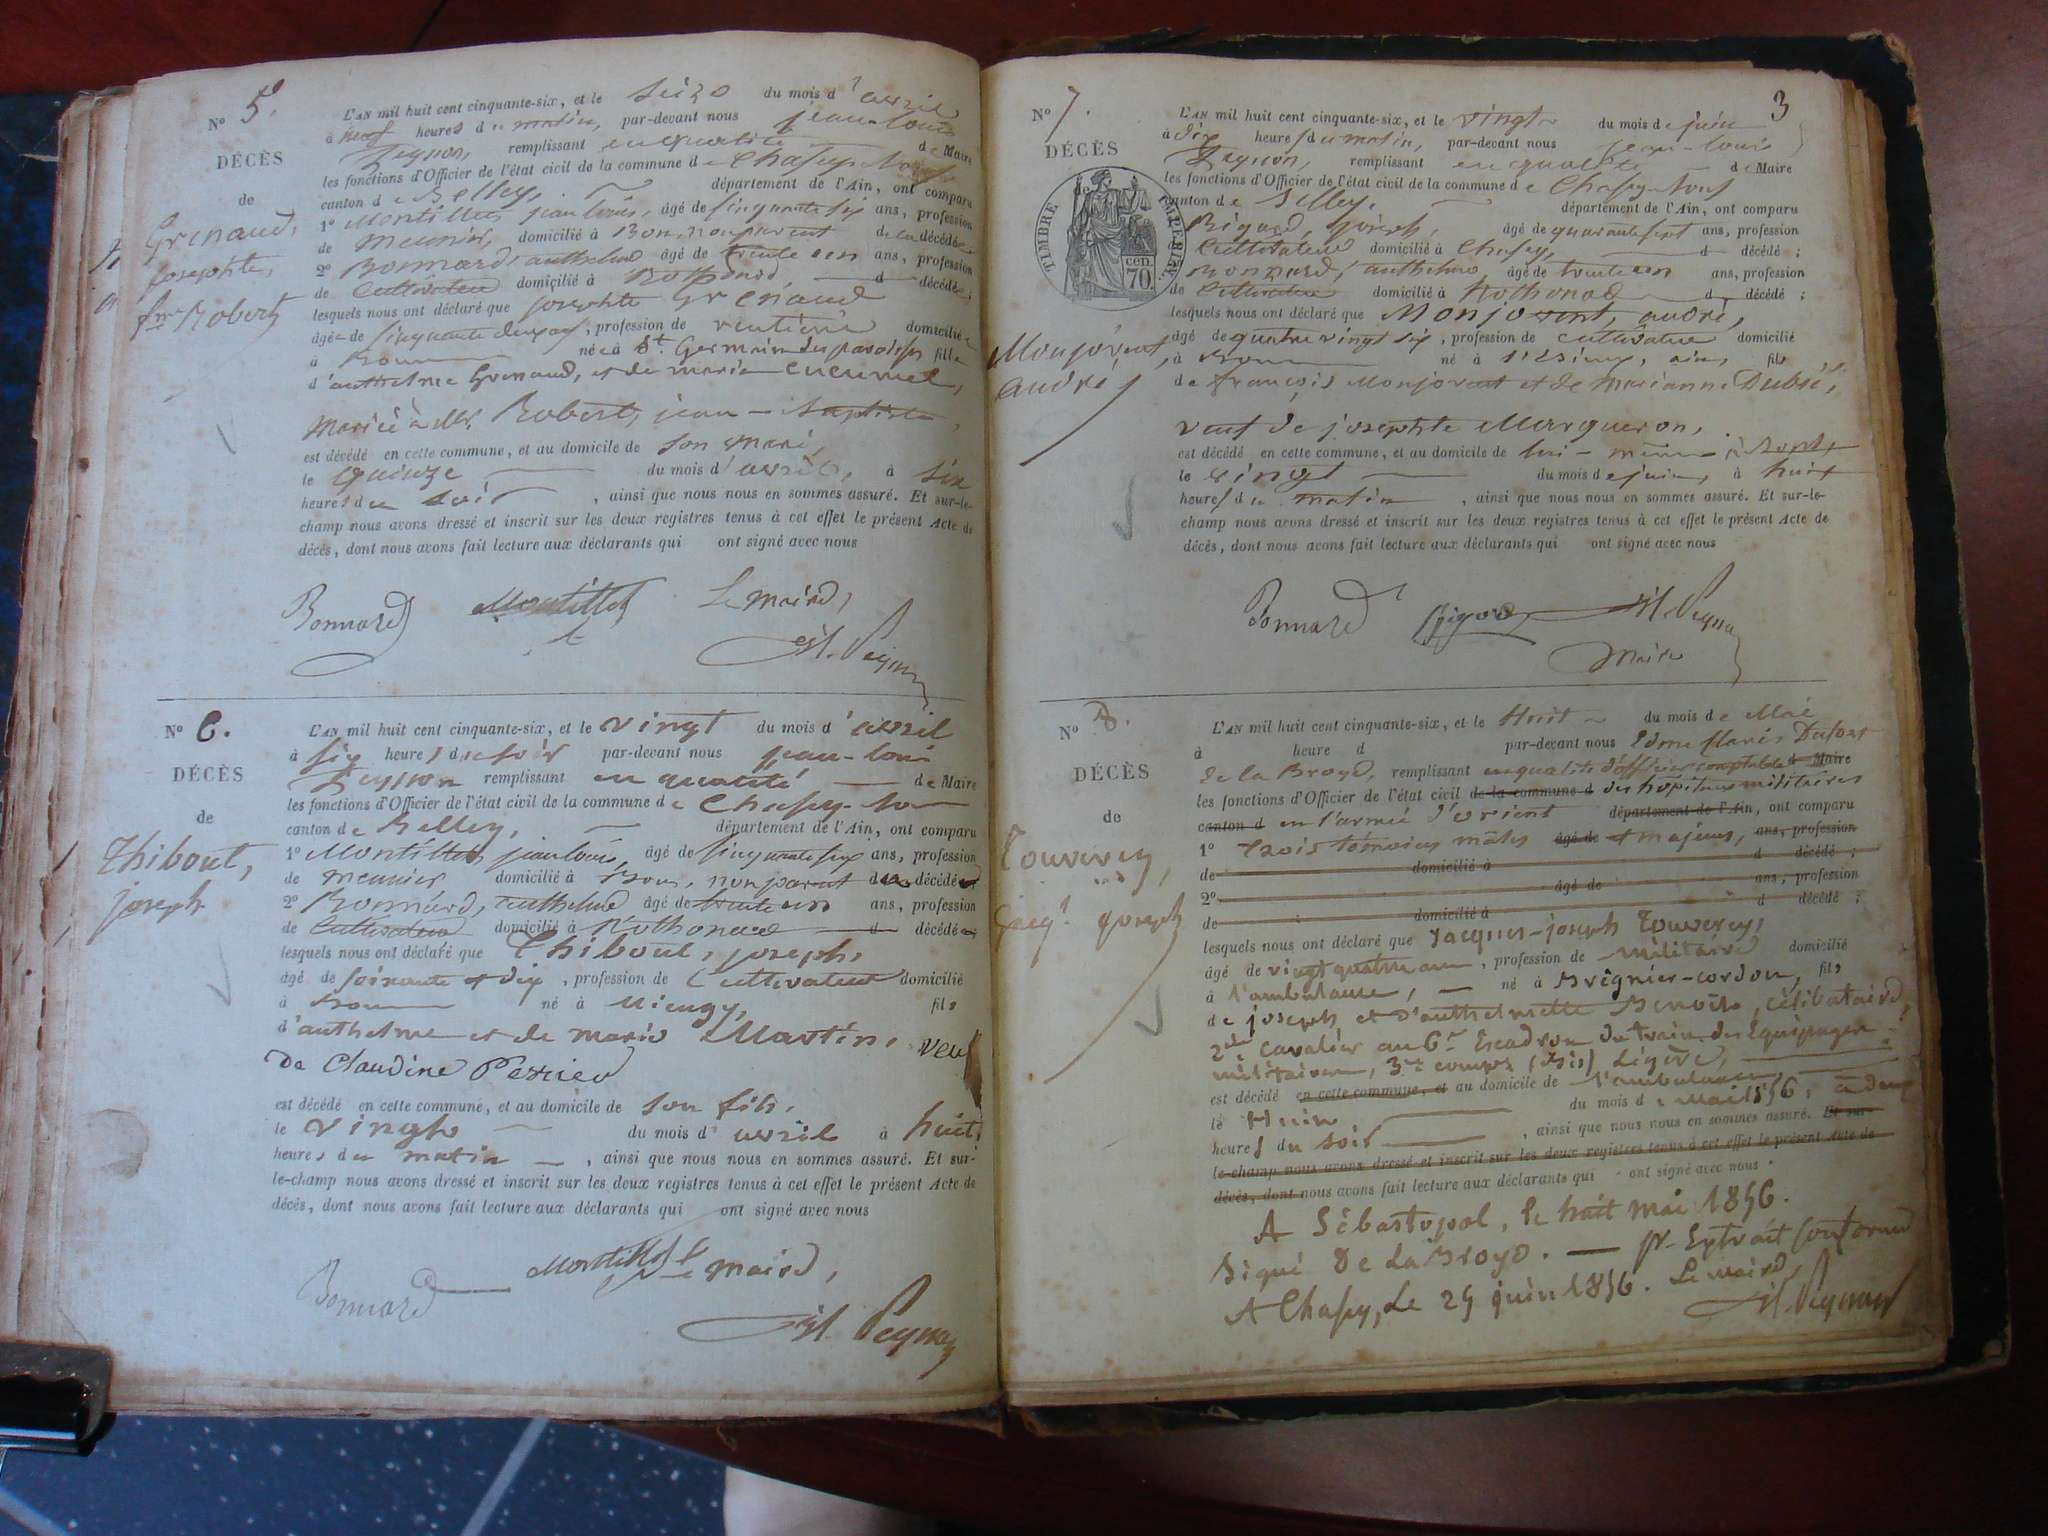 No 5.
DÉCÈS
de
Grinaud,
josephte,
fme Robert
L'AN mil huit cent cinquante-six, et le seize du mois d'avril
à neuf heures du matin, par-devant nous jean-louis
Peysson, remplissant en qualité de Maire
les fonctions d'Officier de l'état civil de la commune de Chasey-
canton de Belley, département de l'Ain, ont comparu
1o Montillet jean louis, âgé de cinquante six ans, profession
de meunier, domicilié à Bon, non parent de la décédée
2o Bonnard, anthelme âgé de trente un ans, profession
de Cultivateur domicilié à Rothonod d décédée;
lesquels nous ont déclaré que josephte Grenaud
âgée de cinquante deux ans, profession de rentière domiciliée
à Bon née à St Germain les paroisses fille
d'anthelme Grenaud, et de marie Cucumel,
Mariée à Mr. Robert, jean-Baptiste,
est décédé en cette commune, et au domicile de son mari,
le quinze du mois d'avril, à six
heures du soir, ainsi que nous nous en sommes assuré. Et sur-le-
champ nous avons dressé et inscrit sur les deux registres tenus à cet effet le présent Acte de
décès, dont nous avons fait lecture aux déclarants qui ont signé avec nous
Bonnard Montillet Le maire,
No 6.
DÉCÈS
de
Thibout,
joseph
L'AN mil huit cent cinquante-six, et le vingt du mois d'avril
à six heures du soir par-devant nous jean-louis
Peysson remplissant en qualité de Maire
les fonctions d'Officier de l'état civil de la commune de Chasey-
canton de Belley, département de l'Ain, ont comparu
1o Montillet jean louis, âgé de cinquante six ans, profession
de meunier domicilié à Bon, non parent du décédé
2o Bonnard, anthelme âgé de trente un ans, profession
de Cultivateur domicilié à Rothonod d décédé
lesquels nous ont déclaré que Thibout, joseph,
âgé de soixante et dix, profession de Cultivateur domicilié
à Bon né à Nieugy, fils
d'anthelme et de marie Martin, veuf
De Claudine Perrier
est décédé en cette commune, et au domicile de son fils,
le vingt du mois d'avril à huit
heures du matin, ainsi que nous nous en sommes assuré. Et sur-
le-champ nous avons dressé et inscrit sur les deux registres tenus à cet effet le présent Acte de
décès, dont nous avons fait lecture aux déclarants qui ont signé avec nous
Bonnard Montillet Le maire,
3
No 7.
DÉCÈS
de
TIMBRE IMPÉRIAL
70 cen.
Monjovent,
andré
L'AN mil huit cent cinquante-six, et le vingt du mois de juin
à dix heures du matin, par-devant nous jean-louis
Peysson, remplissant en qualité de Maire
les fonctions d'Officier de l'état civil de la commune de Chasey-
canton de Belley. département de l'Ain, ont comparu
Bigord, joseph, âgé de quarante sept ans, profession
Cultivateur domicilié à Chasey, d décédé;
Bonnard, anthelme, âgé de trente un ans, profession
de Cultivateur domicilié à Rothonod d décédé;
lesquels nous ont déclaré que Monjovent, andré,
âgé de quatre vingt six, profession de cultivateur domicilié
à Bon né à ain, fils
de françois Monjovent et de marianne Dubié,
veuf de josephte Marqueron,
est décédé en cette commune, et au domicile de lui-même
le vingt du mois de juin, à huit
heures du matin, ainsi que nous nous en sommes assuré. Et sur-le-
champ nous avons dressé et inscrit sur les deux registres tenus à cet effet le présent Acte de
décès, dont nous avons fait lecture aux déclarants qui ont signé avec nous
Bonnard Bigord
maire
No 8.
DÉCÈS
de
Touverey,
Jacqs joseph
L'AN mil huit cent cinquante-six, et le Huit du mois de Mai
à heure d par-devant nous Edme
de la Broye, remplissant en qualité d'officier comptable d Maire
les fonctions d'Officier de l'état civil de la commune d des hôpitaux militaires
canton d en l'armée d'orient département de l'Ain, ont comparu
1o Trois témoins mâles âgé de et majeurs, ans, profession
de domicilié à d décédé;
2o âgé de ans, profession
de domicilié à d décédé;
lesquels nous ont déclaré que Jacques-joseph Touverey,
âgé de vingt quatre ans, profession de militaire domicilié
à l'ambulance, né à Brégnier-cordon, fils
de joseph et d'anthelmette Benoît, célibataire,
2de Cavalier au 6e Escadron du train des Equipages
militaires, 3me compe (bis) Légère,
est décédé en cette commune, et au domicile de l'ambulance,
le Huit du mois de mai 1856, à deux
heures du soir, ainsi que nous nous en sommes assuré. Et sur-
le-champ nous avons dressé et inscrit sur les deux registres tenus à cet effet le présent Acte de
décès, dont nous avons fait lecture aux déclarants qui ont signé avec nous
A Sébastopol, le huit mai 1856.
Signé De la Broye. — pr. Extrait conforme
A Chasey, Le 29 juin 1856. Le maire,